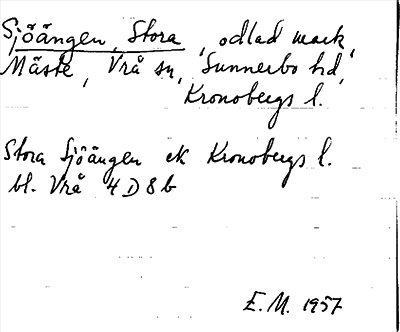 Sjöängen, Stora, odlad mark,
Mäste, Vrå sn, Sunnerbo hd,
Kronobergs l.
Stora Sjöängen ek Kronobergs l.
bl. Vrå 4D8b
E.M. 1957